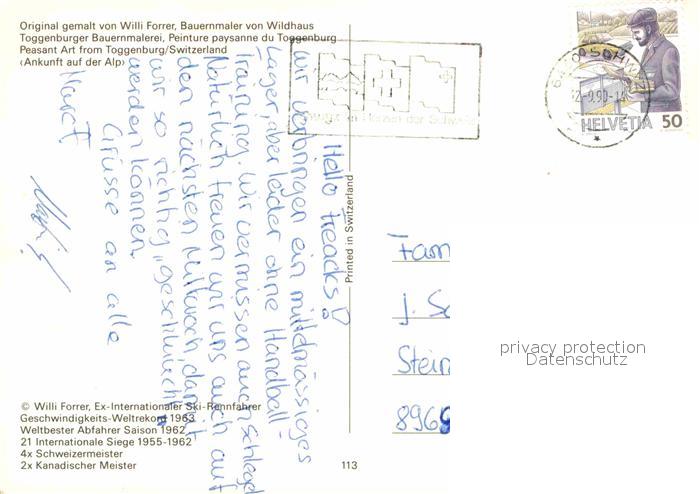 Original gemalt von Willi Forrer, Bauernmaler von Wildhaus
Toggenburger Bauernmalerei, Peinture paysanne du Toggenburg
Peasant Art from Toggenburg/Switzerland
‹Ankunft auf der Alp›
Hello Freacks!
Wir verbringen ein mittelmässiges
Lager, aber leider ohne Handball-
Training. Wir vermissen auch schlegel
Natürlich freuen wir uns auch auf
den nächsten Mittwoch damit
wir so richtig „geschlaucht“
werden können.
Grüsse an alle
Marc F.
Printed in Switzerland
HELVETIA 50
Fam
J. Sc
Stein
8969
privacy protection
Datenschutz
© Willi Forrer, Ex-Internationaler Ski-Rennfahrer
Geschwindigkeits-Weltrekord 1963
Weltbester Abfahrer Saison 1962
21 Internationale Siege 1955-1962
4x Schweizermeister
2x Kanadischer Meister
113